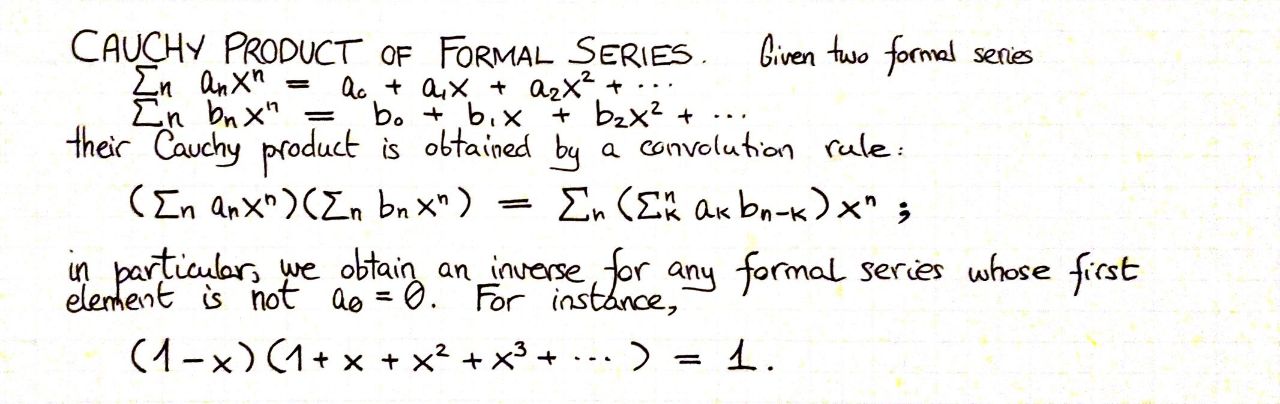 CAUCHY PRODUCT OF FORMAL SERIES. Given two formal series
Σn anxⁿ = a₀ + a₁x + a₂x² + ···
Σn bnxⁿ = b₀ + b₁x + b₂x² + ···
their Cauchy product is obtained by a convolution rule:
(Σn anxⁿ)(Σn bnxⁿ) = Σn (Σⁿₖ aₖbn-k)xⁿ ;
in particular, we obtain an inverse for any formal series whose first
element is not a₀ = 0. For instance,
(1-x)(1 + x + x² + x³ + ··· ) = 1.